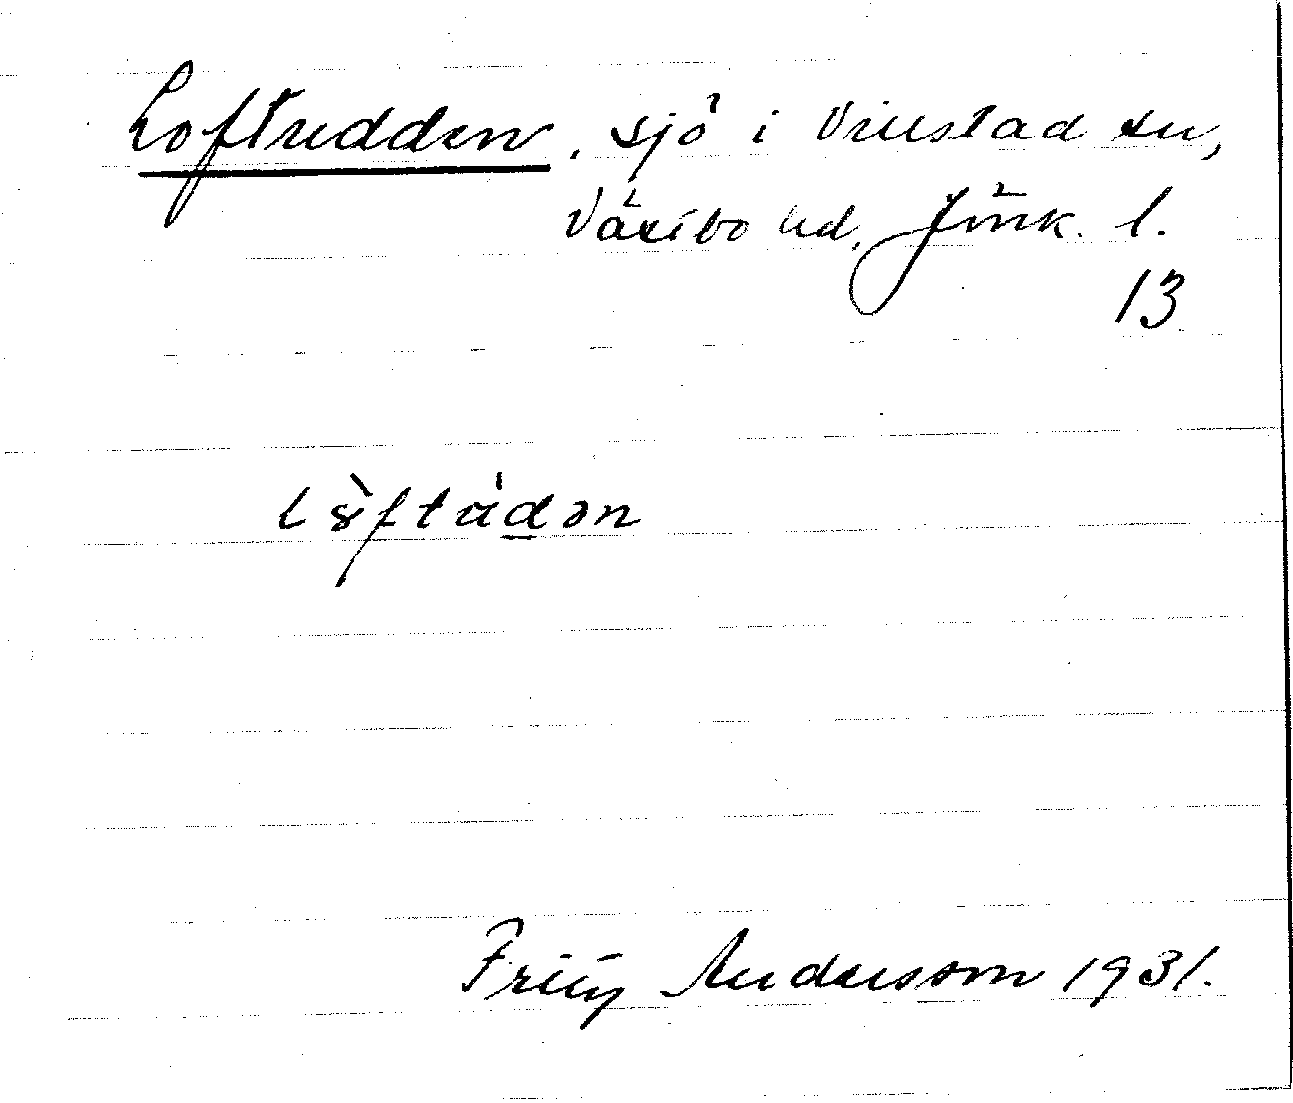 Loftredden, sjö i Vrigstad sn,
Västbo hd, Jönk. l.
13
l𝑜̀ftádən
Fritz Andersson 1931.